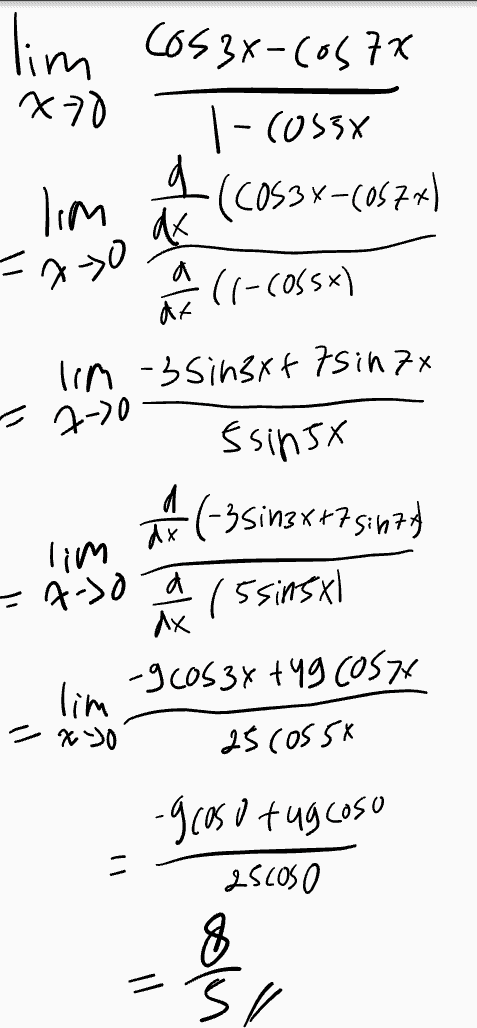 lim x→0 (cos3x-cos7x)/(1-cos3x)
= lim x→0 (d/dx (cos3x-cos7x))/(d/dx (1-cos5x))
= lim x→0 (-3sin3x+7sin7x)/(5sin5x)
= lim x→0 (d/dx (-3sin3x+7sin7x))/(d/dx (5sin5x))
= lim x→0 (-9cos3x+49cos7x)/(25cos5x)
= (-9cos0+49cos0)/(25cos0)
= 8/5 //